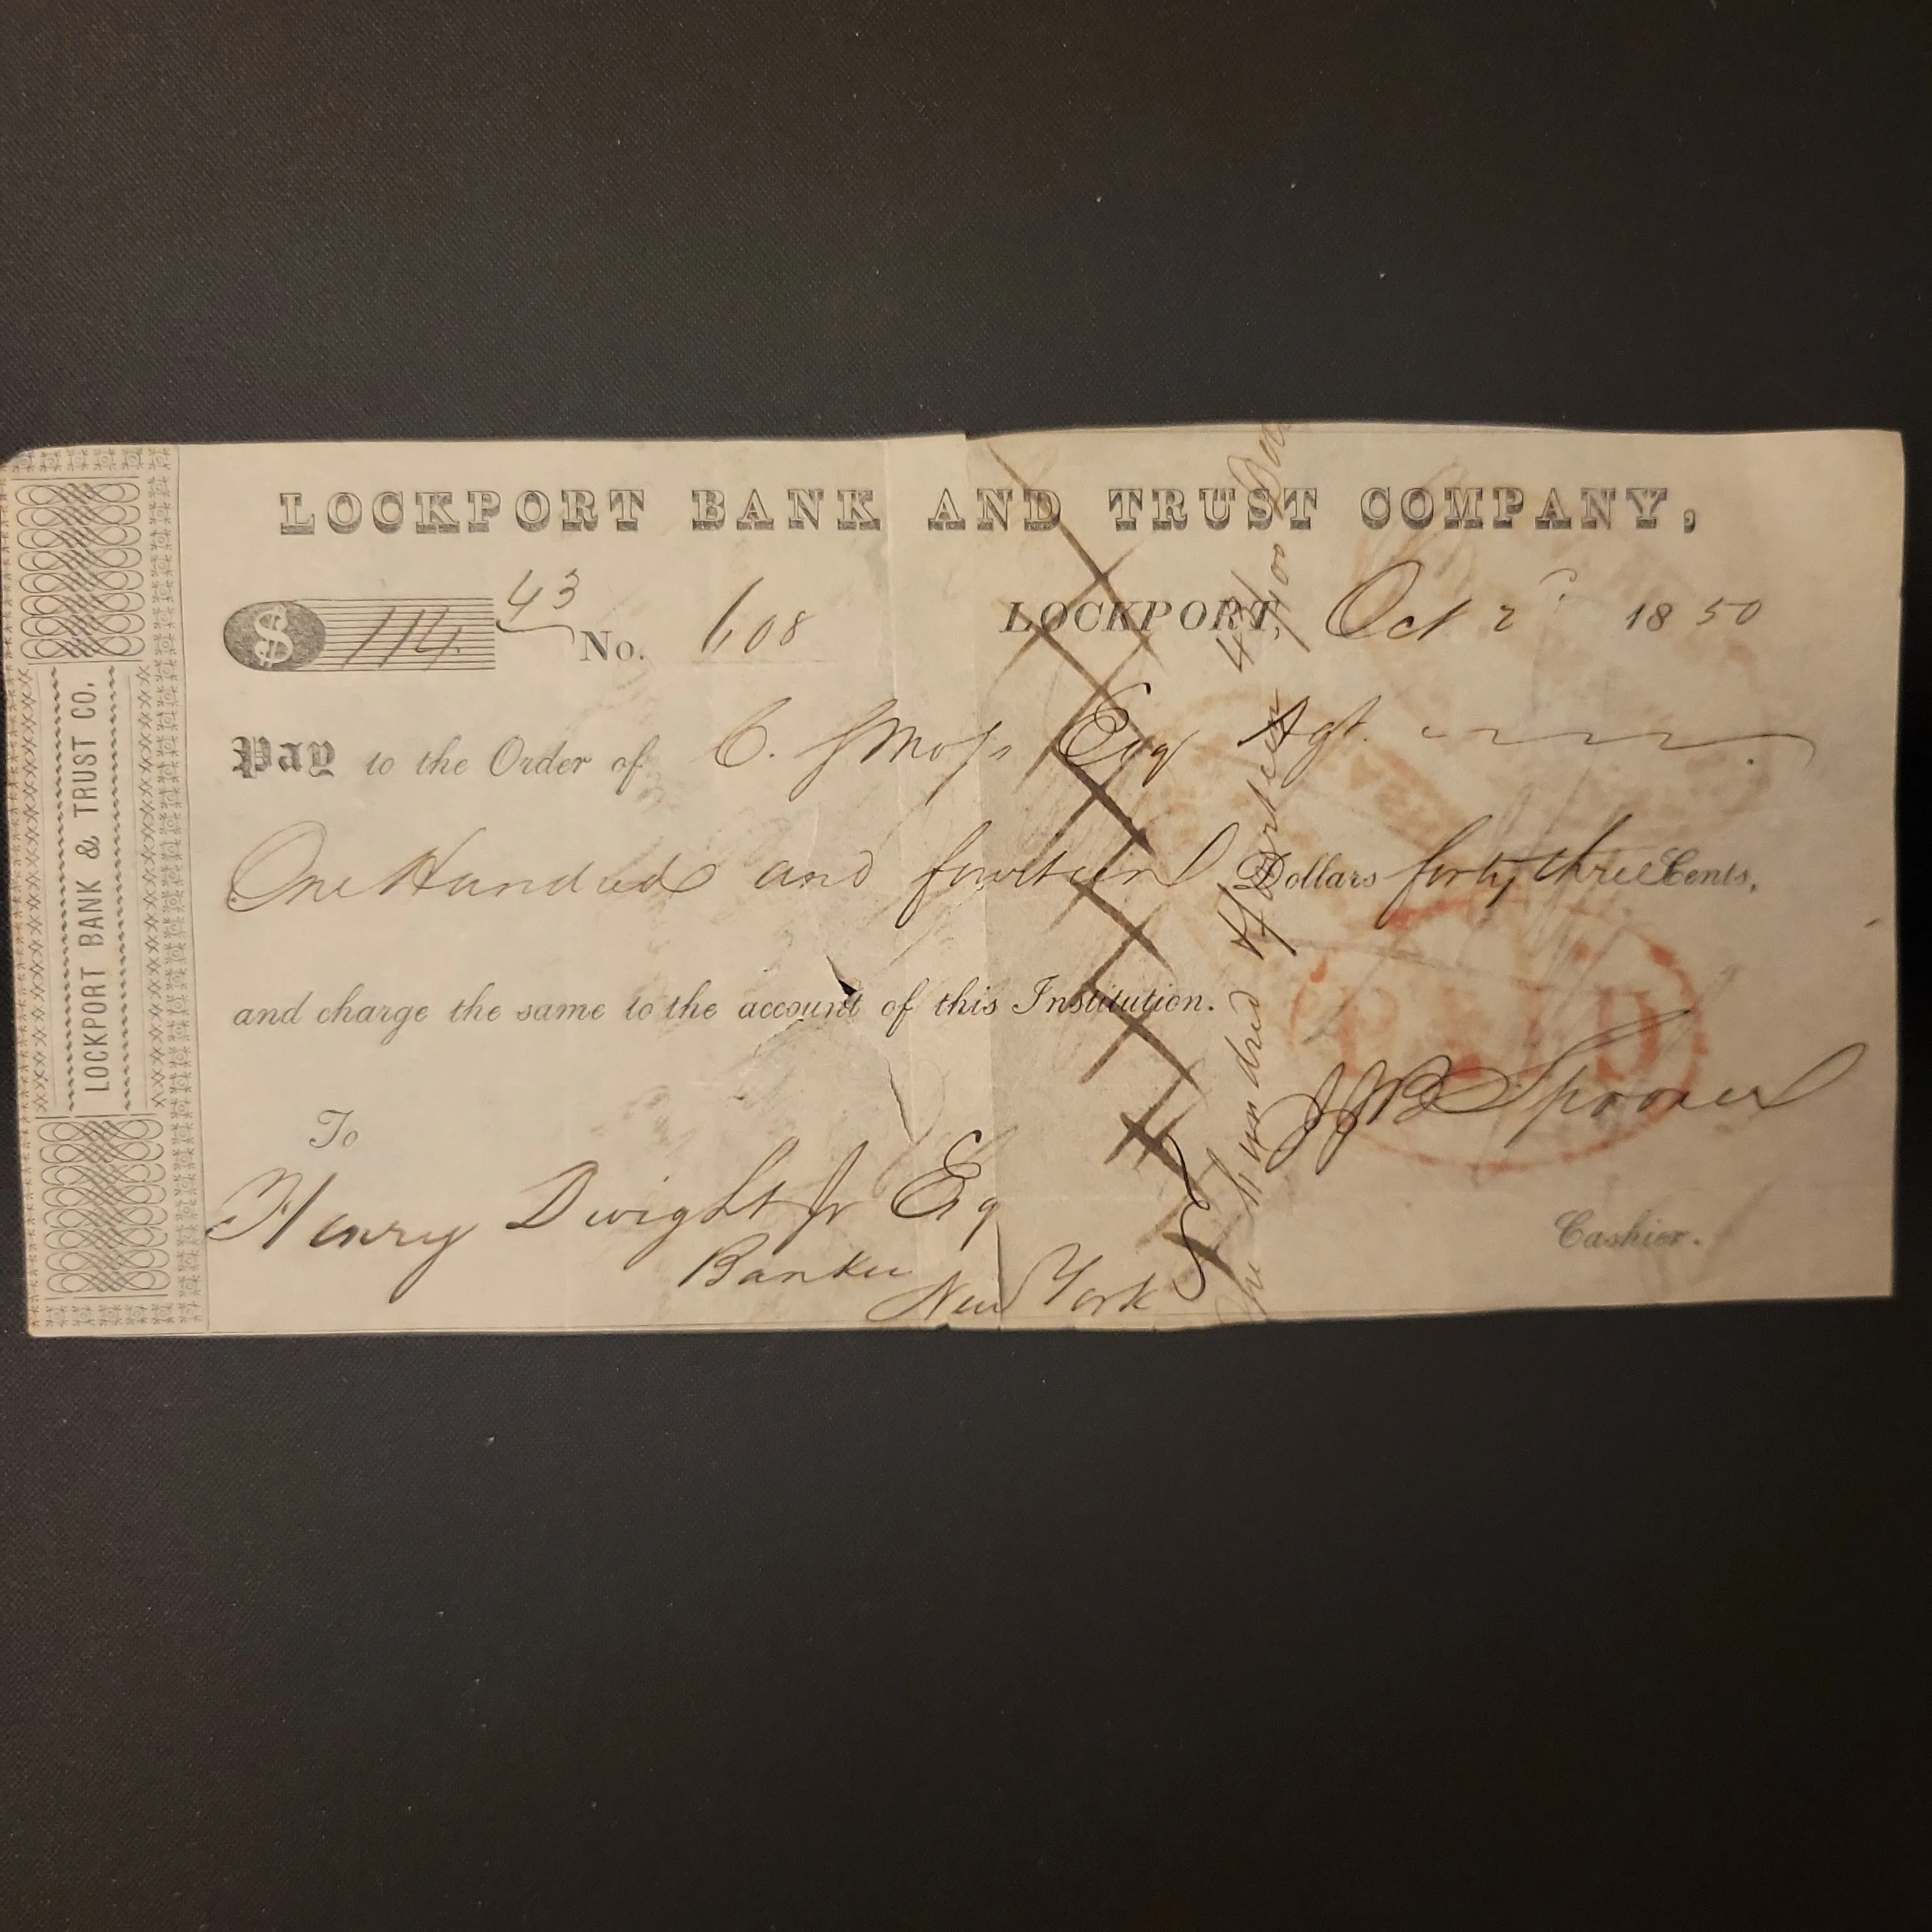 LOCKPORT BANK & TRUST CO.
LOCKPORT BANK AND TRUST COMPANY,
$ 114. 43 No. 608 LOCKPORT, Oct 2d 1850
Pay to the Order of C. Esq Agt.
One Hundred and fourteen Dollars forty three Cents,
and charge the same to the account of this Institution.
To
Henry Dwight Jr Esq
Banker
New York
Cashier.
One hundred & fourteen 43/100
PAID